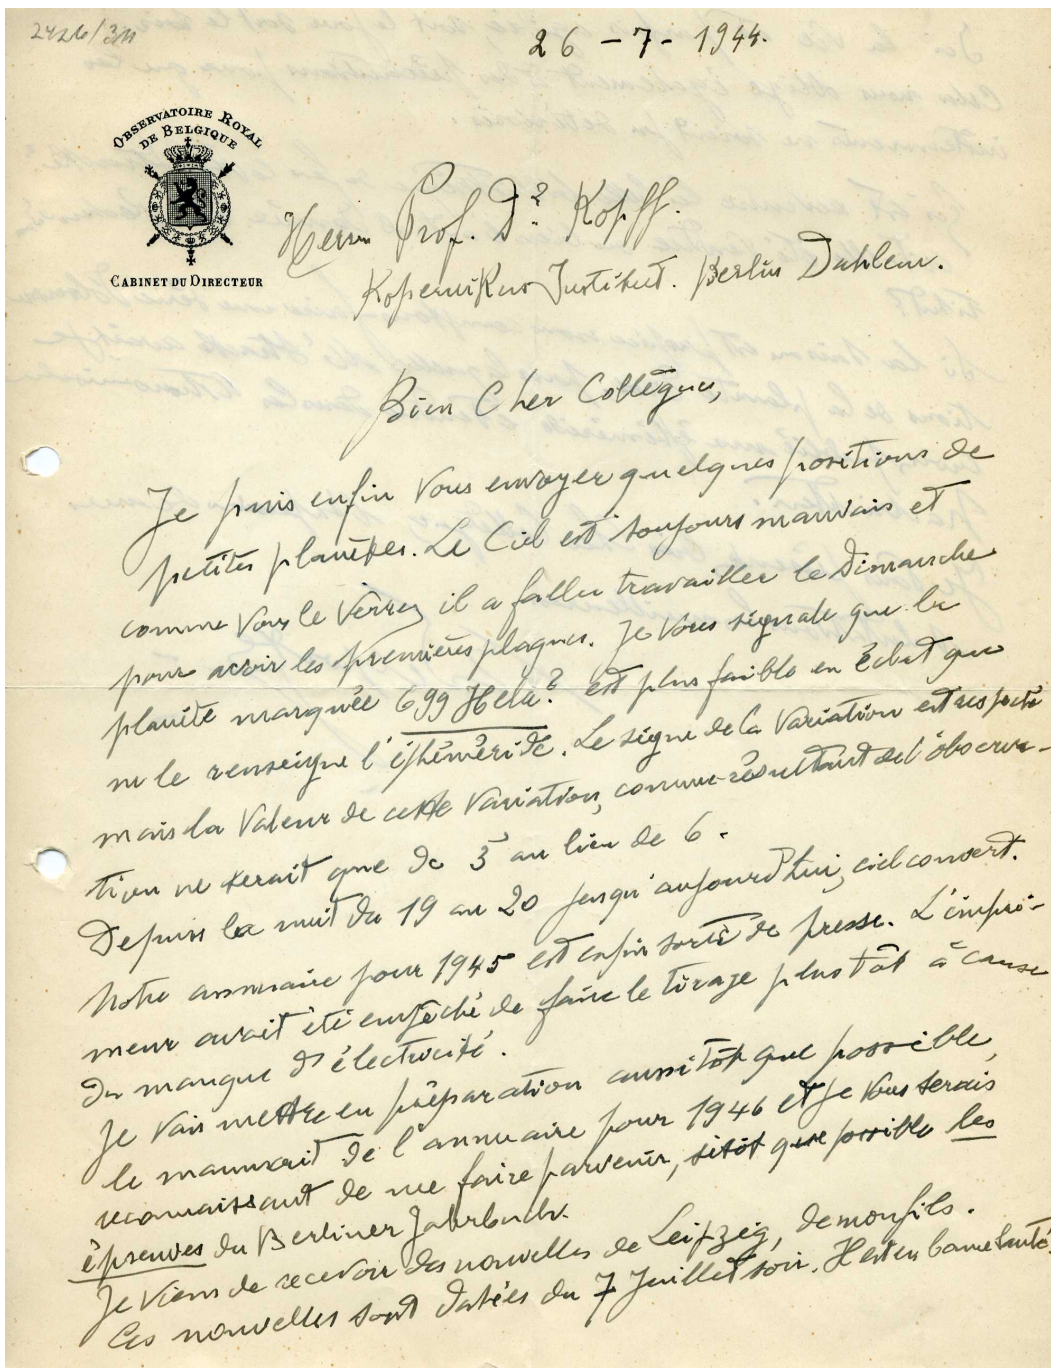 2426/3M
26 - 7 - 1944.
OBSERVATOIRE ROYAL
DE BELGIQUE
CABINET DU DIRECTEUR
Herrn Prof. Dr. Kopff.
Kopernikus Institut. Berlin Dahlem.
Bien Cher Collègue,
Je puis enfin vous envoyer quelques positions de
petites planètes. Le Ciel est toujours mauvais et
comme vous le verrez il a fallu travailler le Dimanche
pour avoir les premières plaques. Je vous signale que la
planète marquée 699 Hela? est plus faible en éclat que
ne le renseigne l'éphéméride. Le signe de la variation est respecté
mais la valeur de cette variation, comme résultant de l'observa-
tion ne serait que de 3 au lieu de 6.
Depuis la nuit du 19 au 20 jusqu'aujourd'hui, ciel couvert.
Notre annuaire pour 1945 est enfin sorti de presse. L'impri-
meur avait été empêché de faire le tirage plus tôt à cause
du manque d'électricité.
Je vais mettre en préparation aussitôt que possible,
le manuscrit de l'annuaire pour 1946 et je vous serais
reconnaissant de me faire parvenir, sitôt que possible les
épreuves du Berliner Jahrbuch.
Je viens de recevoir des nouvelles de Leipzig, de mon fils.
Ces nouvelles sont datées du 7 Juillet soir. Il est en bonne santé.